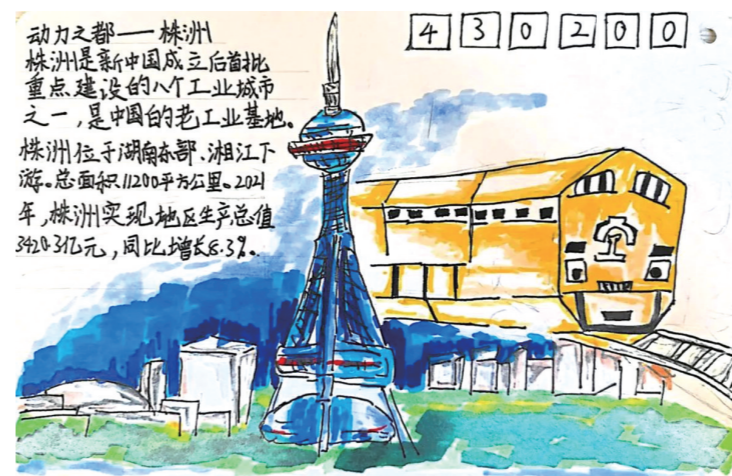 动力之都——株洲
株洲是新中国成立后首批
重点建设的八个工业城市
之一,是中国的老工业基地。
株洲位于湖南东部、湘江下
游。总面积11200平方公里。2021
年,株洲实现地区生产总值
3420.3亿元,同比增长8.3%。
430200